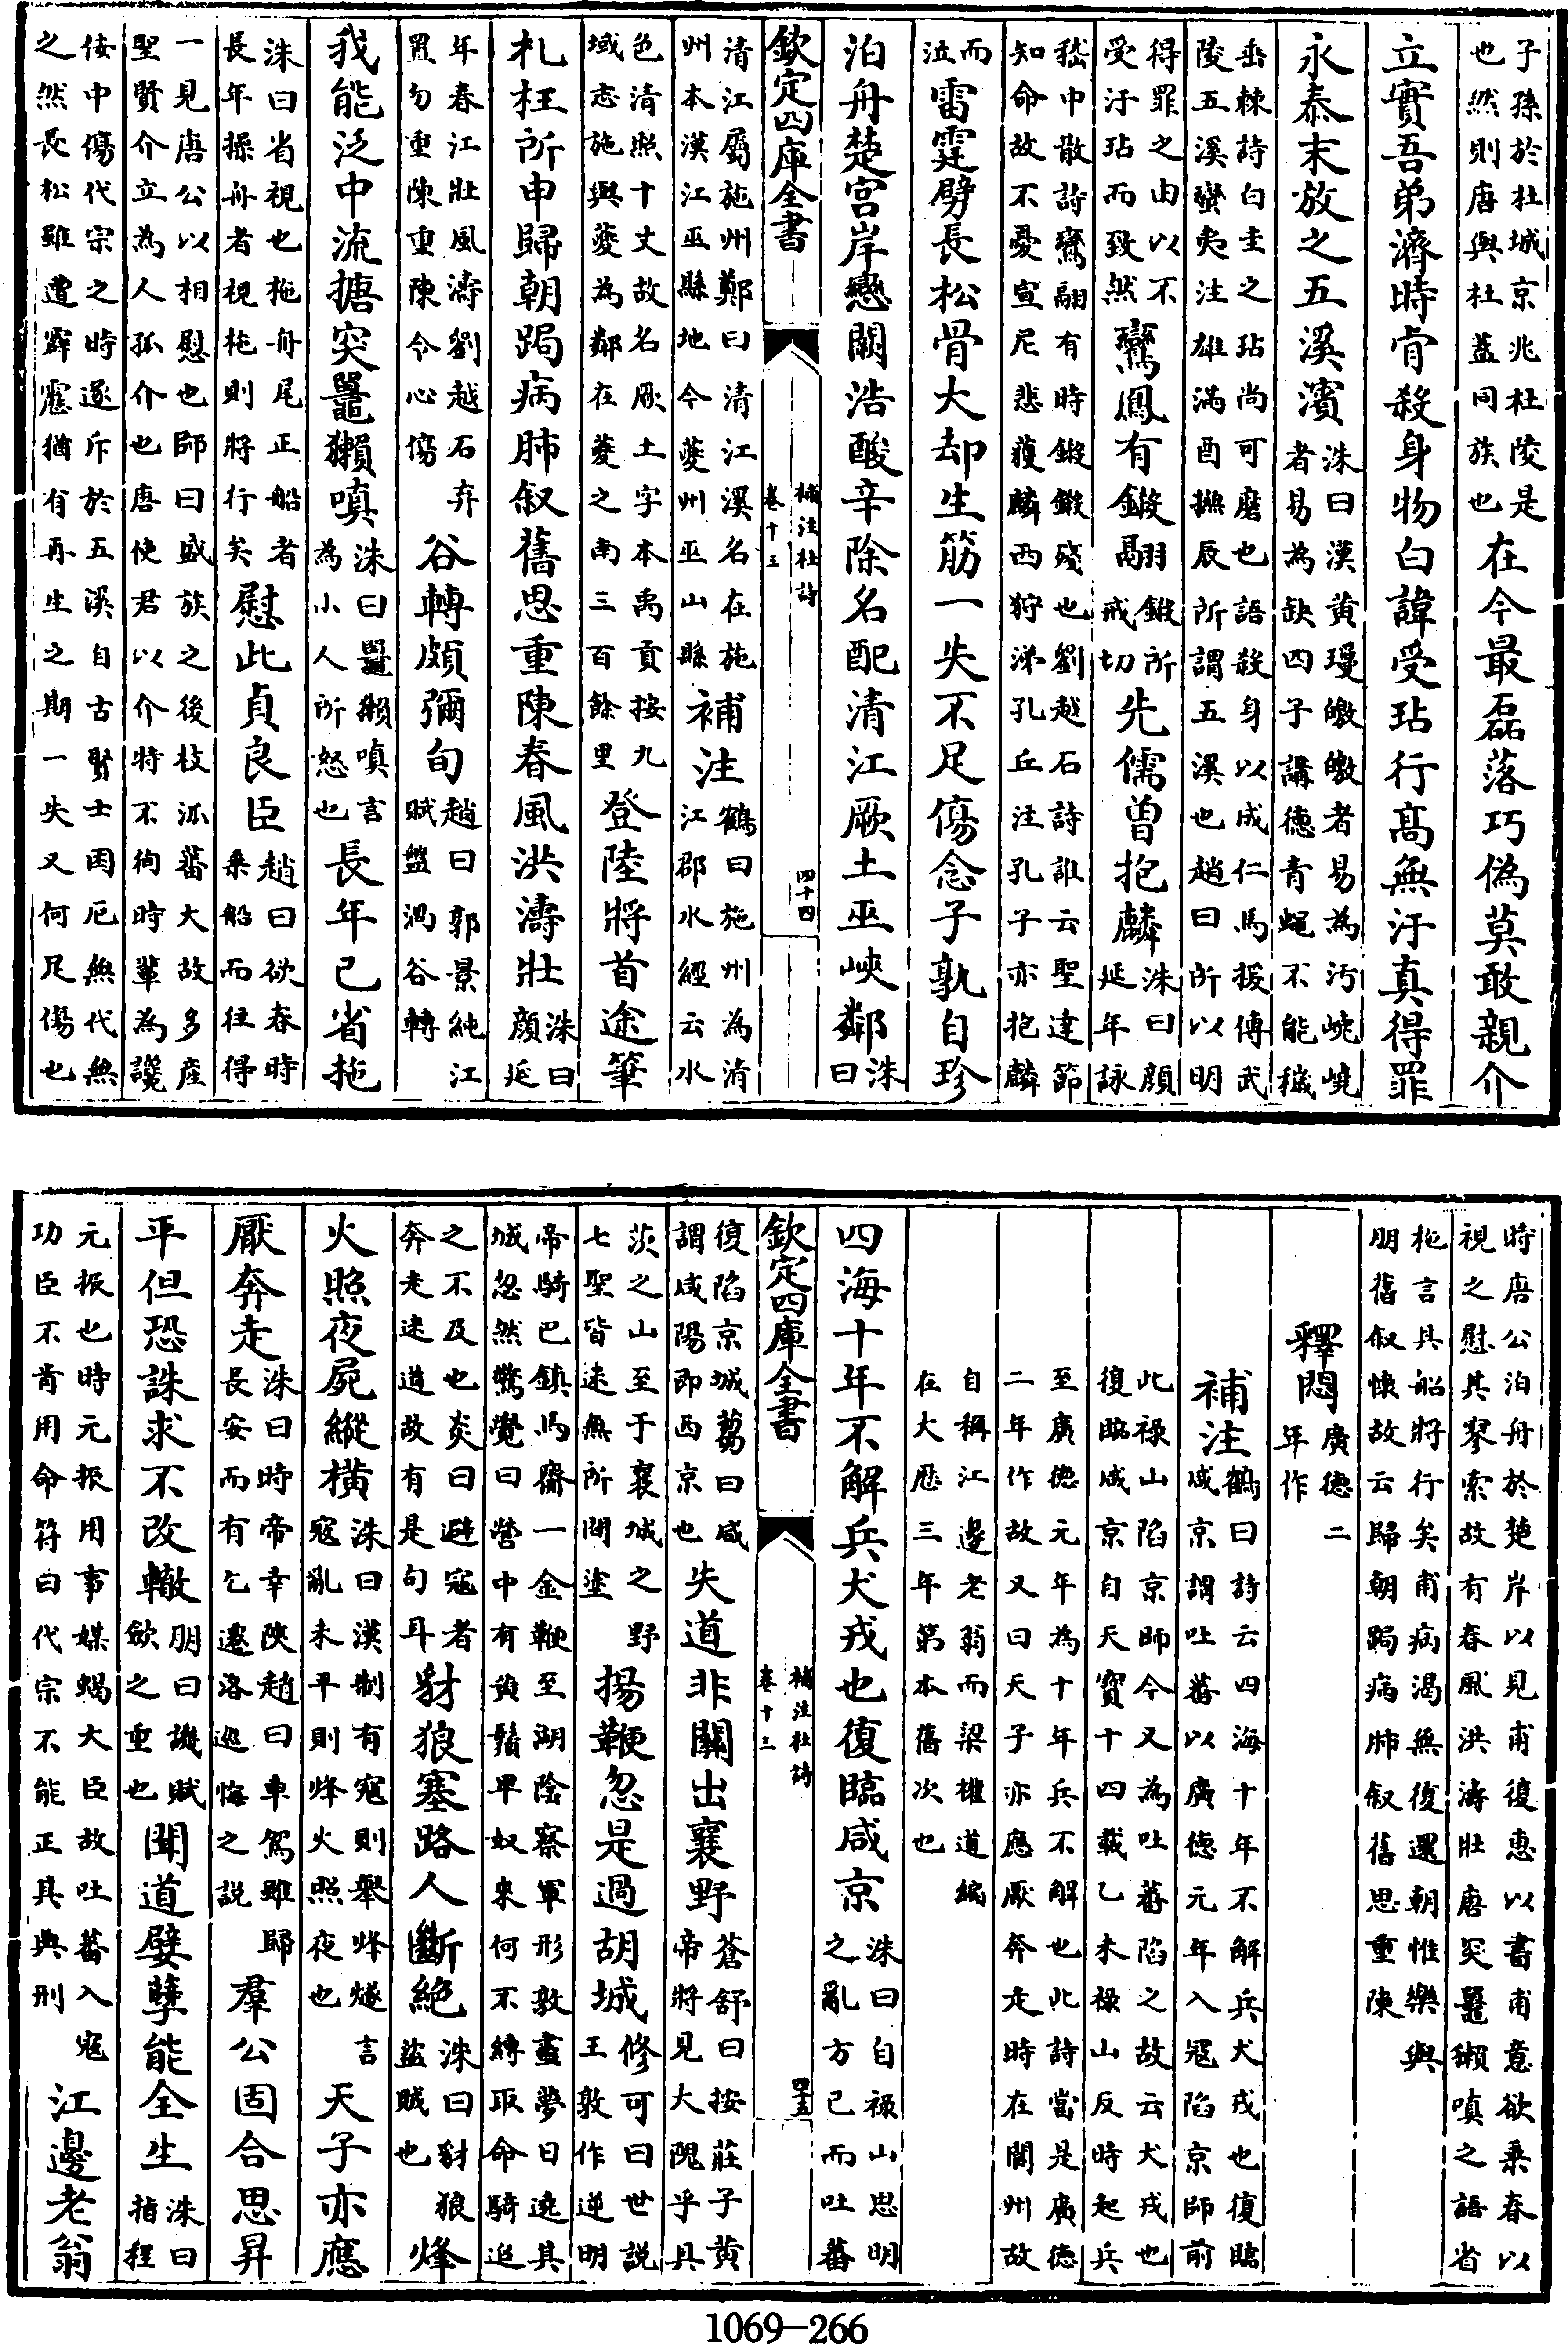 子孫於杜城京兆杜陵是也然則唐與杜蓋同族也在今最磊落巧偽莫敢親介
立實吾弟濟時肯殺身物白諱受玷行髙無汙真得罪
永泰末放之五溪濱洙曰漢黄瓊皦皦者易為汚嶢嶢者易為缺四子講德青蠅不能穢
垂棘詩白圭之玷尚可磨也語殺身以成仁馬援傳武陵五溪蠻夷注雄滿酉撫辰所謂五溪也趙曰所以明
得罪之由以不受汙玷而致然鸞鳳有鎩翮鎩所戒切先儒曾抱麟洙曰顔延年詠
嵇中散詩鸞翮有時鎩鎩殘也劉越石詩誰云聖達節知命故不憂宣尼悲獲麟西狩涕孔丘注孔子亦抱麟
而泣雷霆劈長松骨大却生筋一失不足傷念子孰自珍
泊舟楚宫岸戀闕浩酸辛除名配清江厥土巫峽鄰洙曰
欽定四庫全書 補注杜詩卷十三 四十四
清江屬施州鄭曰清江溪名在施州本漢江巫縣地今夔州巫山縣補注鶴曰施州為清江郡水經云水
色清照十丈故名厥土字本禹貢按九域志施與夔為鄰在夔之南三百餘里登陸將首途筆
札枉所申歸朝跼病肺叙舊思重陳春風洪濤壯洙曰顔延
年春江壯風濤劉越石弃置勿重陳重陳令心傷谷轉頗彌旬趙曰郭景純江賦盤渦谷轉
我能泛中流搪突鼉獺嗔洙曰鼉獺嗔言為小人所怒也長年已省拖
洙曰省視也拖舟尾正船者長年操舟者視柂則將行矣慰此貞良臣趙曰欲春時乗船而往得
一見唐公以相慰也師曰盛族之後枝派蕃大故多産聖賢介立為人孤介也唐使君以介特不徇時輩為讒
佞中傷代宗之時遂斥於五溪自古賢士困厄無代無之然長松雖遭霹靂猶有再生之期一失又何足傷也
時唐公泊舟於楚岸以見甫復惠以書甫意欲乗春以視之慰其寥索故有春風洪濤壯唐突鼉獺嗔之語省
柂言具船將行矣甫病渴無復還朝惟樂與朋舊叙懐故云歸朝跼病肺叙舊思重陳
釋悶廣德二年作
補注鶴曰詩云四海十年不解兵犬戎也復臨咸京謂吐蕃以廣德元年入冦陷京師前
此禄山陷京師今又為吐蕃陷之故云犬戎也復臨咸京自天寳十四載乙未禄山反時起兵
至廣德元年為十年兵不解也此詩當是廣德二年作故又曰天子亦應厭奔走時在閬州故
自稱江邊老翁而梁權道編在大厯三年第本舊次也
四海十年不解兵犬戎也復臨咸京洙曰自禄山思明之亂方已而吐蕃
欽定四庫全書 補注杜詩卷十三 四十五
復陷京城蒭曰咸謂咸陽即西京也失道非關出襄野蒼舒曰按莊子黄帝將見大隗乎具
茨之山至于襄城之野七聖皆迷無所問塗揚鞭忽是過胡城修可曰世説王敦作逆明
帝騎巴鎮馬齎一金鞭至湖陰察軍形敦晝夢日遶其城忽然驚覺曰營中有黄鬚鮮卑奴來何不縛取命騎追
之不及也炎曰避宼者奔走迷道故有是句耳豺狼塞路人斷絶洙曰豺狼盗賊也烽
火照夜屍縱横洙曰漢制有宼則舉烽燧言寇亂未平則烽火照夜也天子亦應
厭奔走洙曰時帝幸陜趙曰車駕雖歸長安而有乞遷洛巡悔之説羣公固合思昇
平但恐誅求不改轍朋曰譏賦歛之重也聞道嬖孽能全生洙曰指程
元振也時元振用事媒蝎大臣故吐蕃入宼功臣不肯用命符曰代宗不能正其典刑江邊老翁
1069-266